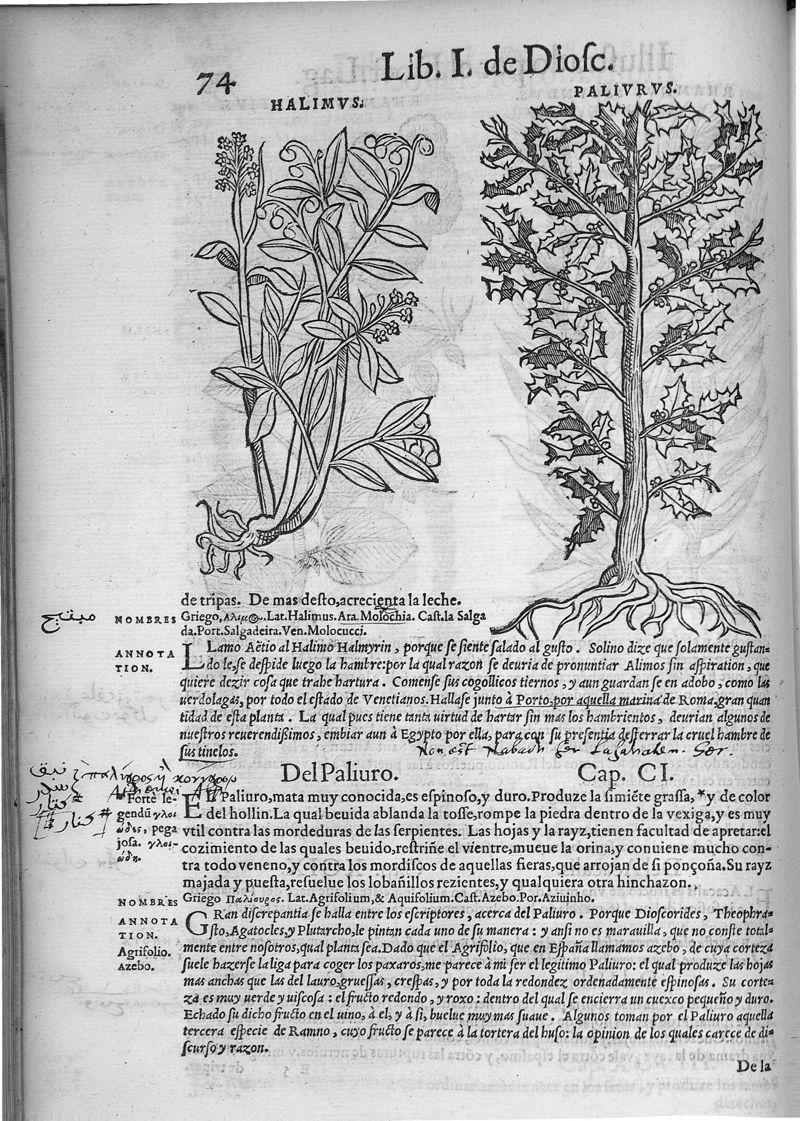 74
Lib. I. de Diosc.
HALIMVS.
PALIVRVS.
de tripas. De mas desto, acrecienta la leche.
NOMBRES
Griego, Αλιμος. Lat. Halimus. Ara. Molochia. Cast. la Salga
da. Port. Salgadeira. Ven. Molocucci.
ANNOTA
TION.
LLamo Aëtio al Halimo Halmyrin, porque se siente salado al gusto. Solino dize que solamente gustan-
dole, se despide luego la hambre: por la qual razon se deuria de pronuntiar Alimos sin aspiration, que
quiere dezir cosa que trahe hartura. Comense sus cogollicos tiernos, y aun guardan se en adobo, como las
uerdolagas, por todo el estado de Venetianos. Hallase junto à Porto, por aquella marina de Roma, gran quan
tidad de esta planta. La qual pues tiene tanta uirtud de hartar sin mas los hambrientos, deurian algunos de
nuestros reuerendißimos, embiar aun à Egypto por ella, para con su presentia desterrar la cruel hambre de
sus tinelos.
Non est
Del Paliuro. Cap. CI.
*Forte le-
gendū γλοι
ώδες, pega
josa. γλοι-
ώδη.
EL Paliuro, mata muy conocida, es espinoso, y duro. Produze la simiēte grassa, *y de color
del hollin. La qual beuida ablanda la tosse, rompe la piedra dentro de la vexiga, y es muy
vtil contra las mordeduras de las serpientes. Las hojas y la rayz, tienen facultad de apretar: el
cozimiento de las quales beuido, restriñe el vientre, mueue la orina, y conuiene mucho con-
tra todo veneno, y contra los mordiscos de aquellas fieras, que arrojan de si ponçoña. Su rayz
majada y puesta, resuelue los lobanillos rezientes, y qualquiera otra hinchazon.
NOMBRES
Griego Παλίουρος. Lat. Agrifolium, & Aquifolium. Cast. Azebo. Por. Aziuinho.
ANNOTA
TION.
Agrifolio.
Azebo.
GRan discrepantia se halla entre los escriptores, acerca del Paliuro. Porque Dioscorides, Theophra-
sto, Agatocles, y Plutarcho, le pintan cada uno de su manera: y ansi no es marauilla, que no conste total-
mente entre nosotros, qual planta sea. Dado que el Agrifolio, que en España llamamos azebo, de cuya corteza
suele hazerse la liga para coger los paxaros, me parece à mi ser el legitimo Paliuro: el qual produze las hojas
mas anchas que las del lauro, gruessas, crespas, y por toda la redondez ordenadamente espinosas. Su corte-
za es muy uerde y uiscosa: el fructo redondo, y roxo: dentro del qual se encierra un cuexco pequeño y duro.
Echado su dicho fructo en el uino, à el, y à si, buelue muy mas suaue. Algunos toman por el Paliuro aquella
tercera especie de Ramno, cuyo fructo se parece à la tortera del huso: la opinion de los quales carece de di-
scurso y razon.
De la